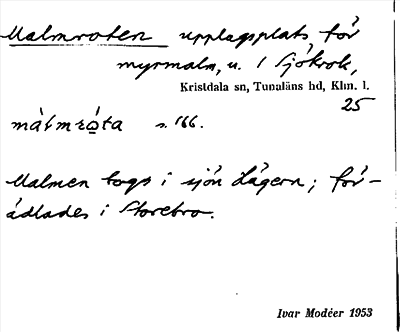 Malmroten upplagsplats för
myrmalm, u. 1 Sjökrok,
Kristdala sn, Tunaläns hd, Klm. l.
25
màlmrọ́ta s. 166.
Malmen togs i sjön Lägern; för-
ädlades i Storebro.
Ivar Modéer 1953